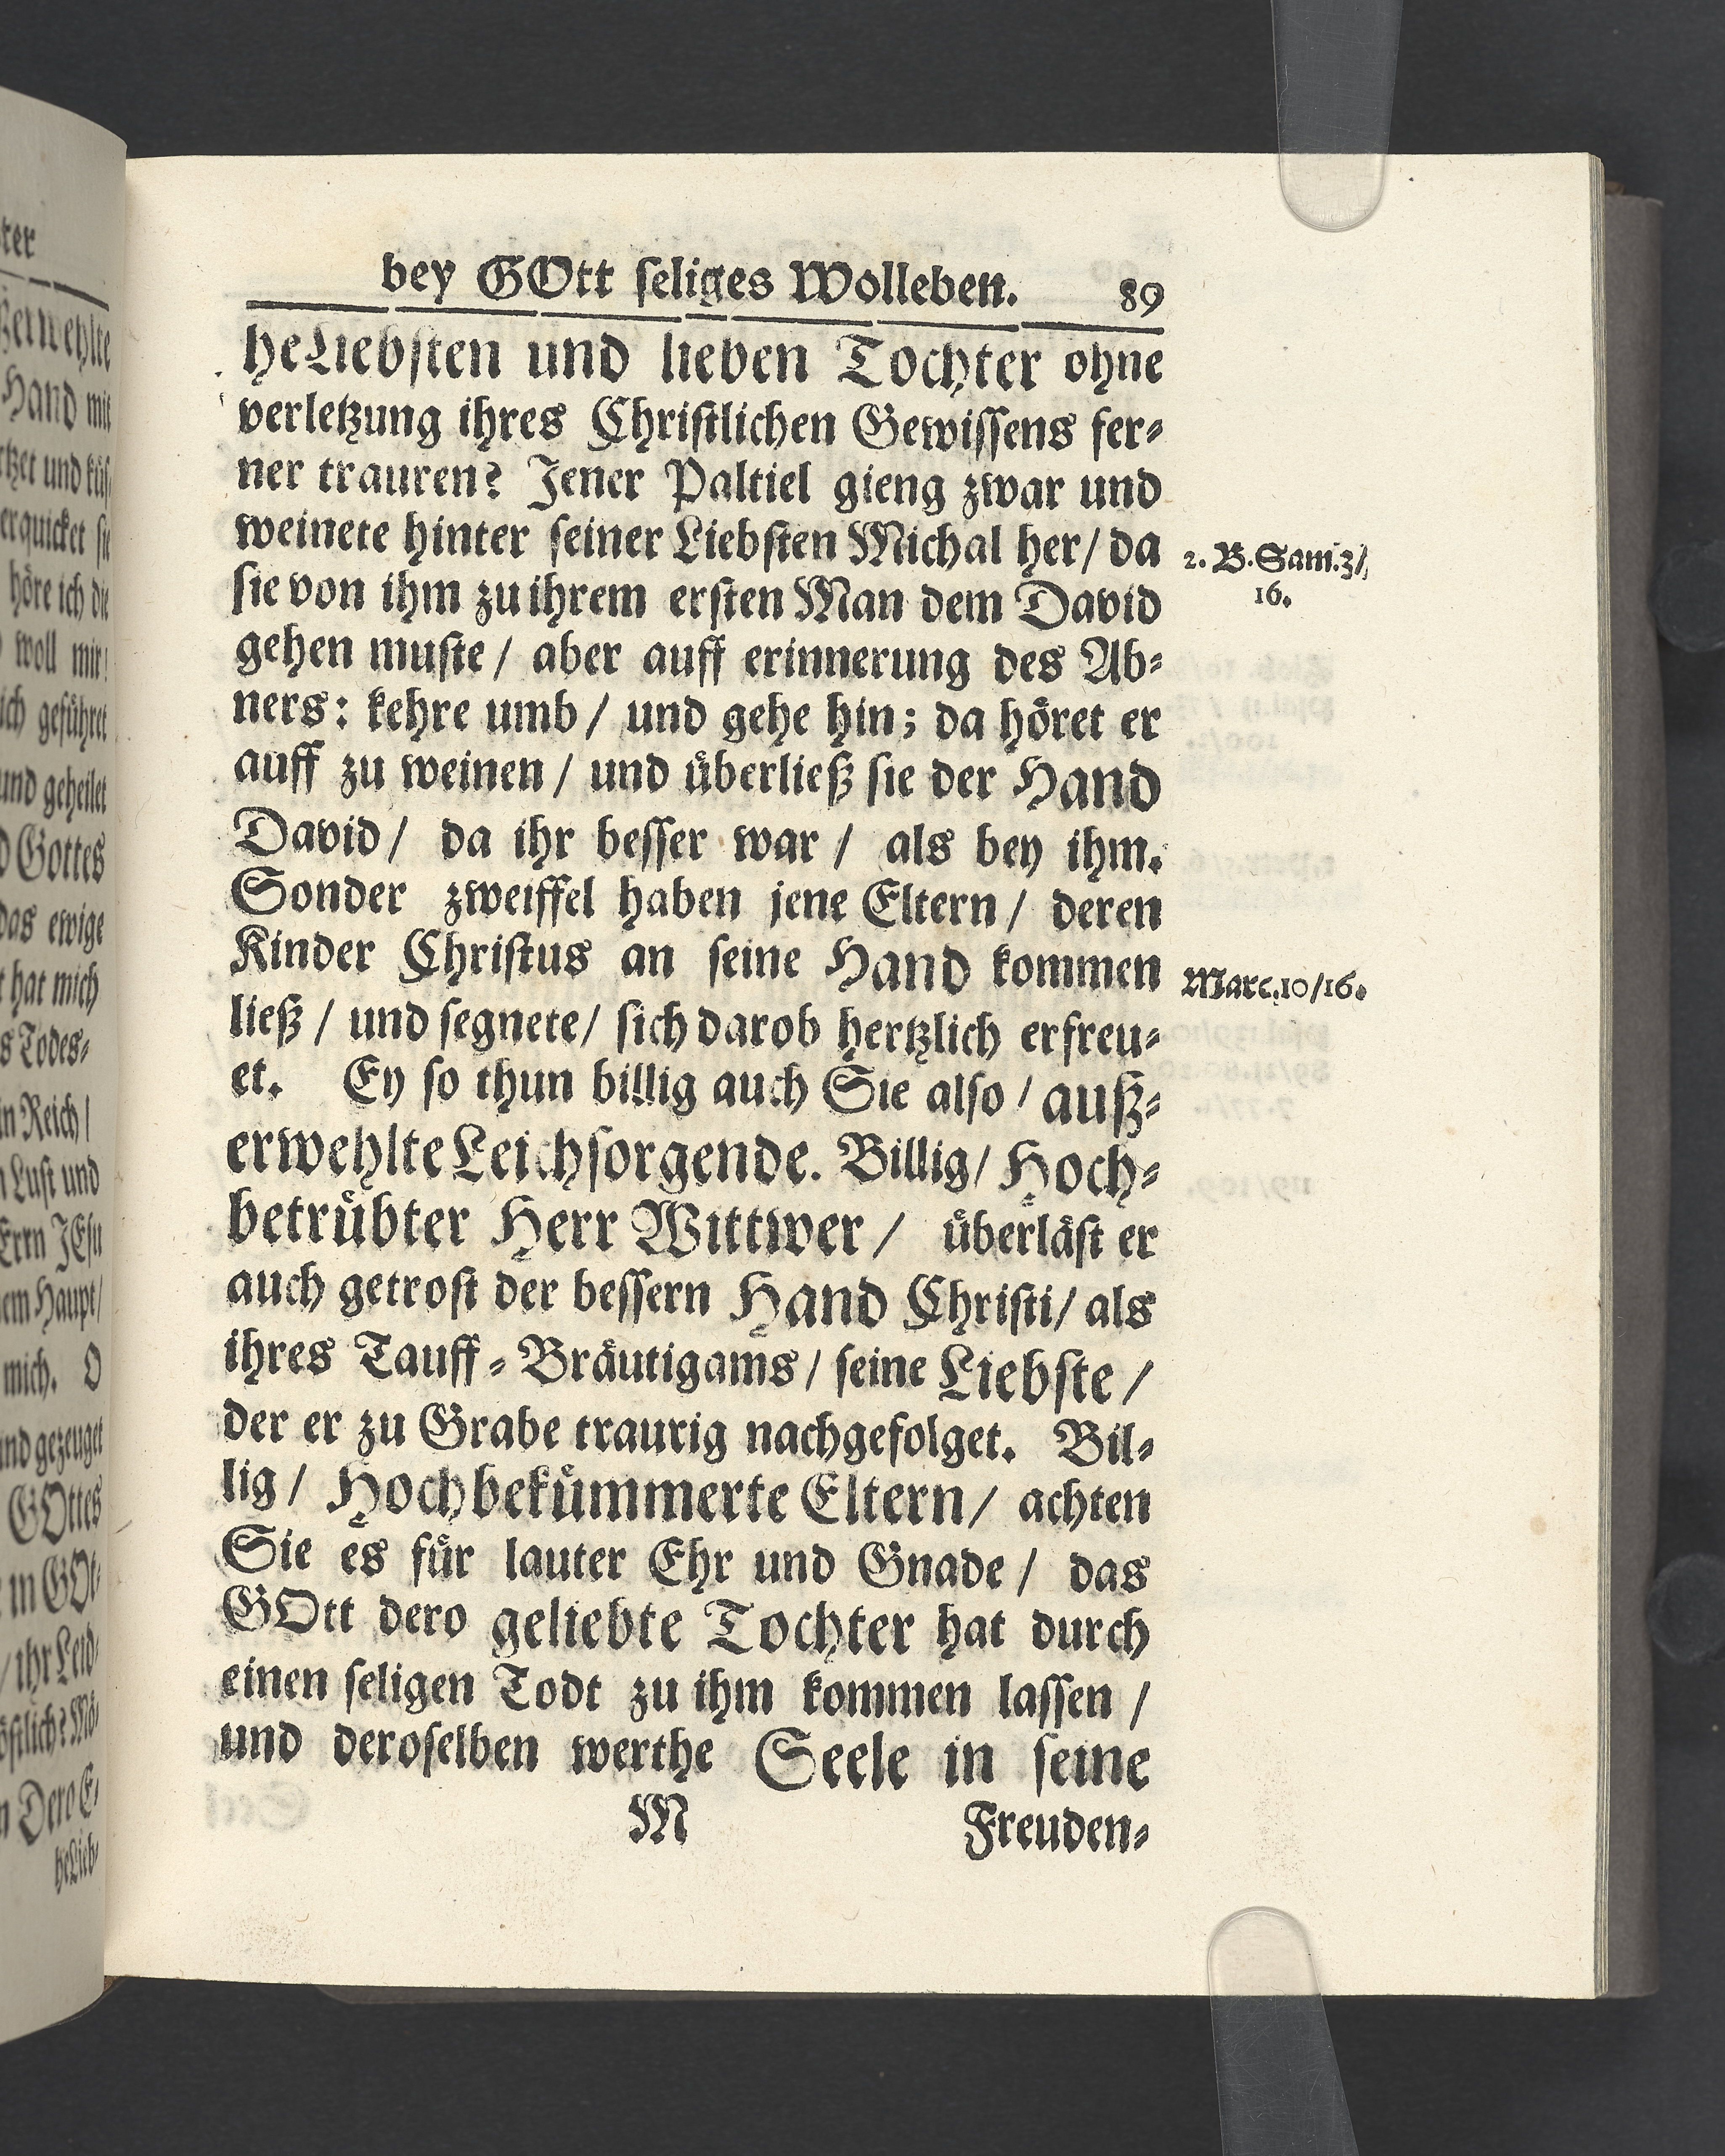 bey GOtt ſeliges Wolleben. 89
heLiebſten und lieben Tochter ohne
verletzung ihres Chriſtlichen Gewiſſens fer⸗
ner trauren? Jener Paltiel gieng zwar und
weinete hinter ſeiner Liebſten Michal her/ da
ſie von ihm zu ihrem erſten Man dem David
gehen muſte/ aber auff erinnerung des Ab⸗
ners: kehre umb/ und gehe hin; da hoͤret er
auff zu weinen/ und uͤberließ ſie der Hand
David/ da ihr beſſer war/ als bey ihm.
Sonder zweiffel haben jene Eltern/ deren
Kinder Chriſtus an ſeine Hand kommen
ließ/ und ſegnete/ ſich darob hertzlich erfreu⸗
et. Ey ſo thun billig auch Sie alſo/ auß⸗
erwehlte Leichſorgende. Billig/ Hoch⸗
betruͤbter Herr Wittwer/ uͤberlaͤſt er
auch getroſt der beſſern Hand Chriſti/ als
ihres Tauff⸗Braͤutigams/ ſeine Liebſte/
der er zu Grabe traurig nachgefolget. Bil⸗
lig/ Hochbekuͤmmerte Eltern/ achten
Sie es fuͤr lauter Ehr und Gnade/ das
GOtt dero geliebte Tochter hat durch
einen ſeligen Todt zu ihm kommen laſſen/
und deroſelben werthe Seele in ſeine
M Freuden⸗
2. B. Sam. 3/
16.
Marc. 10/16.